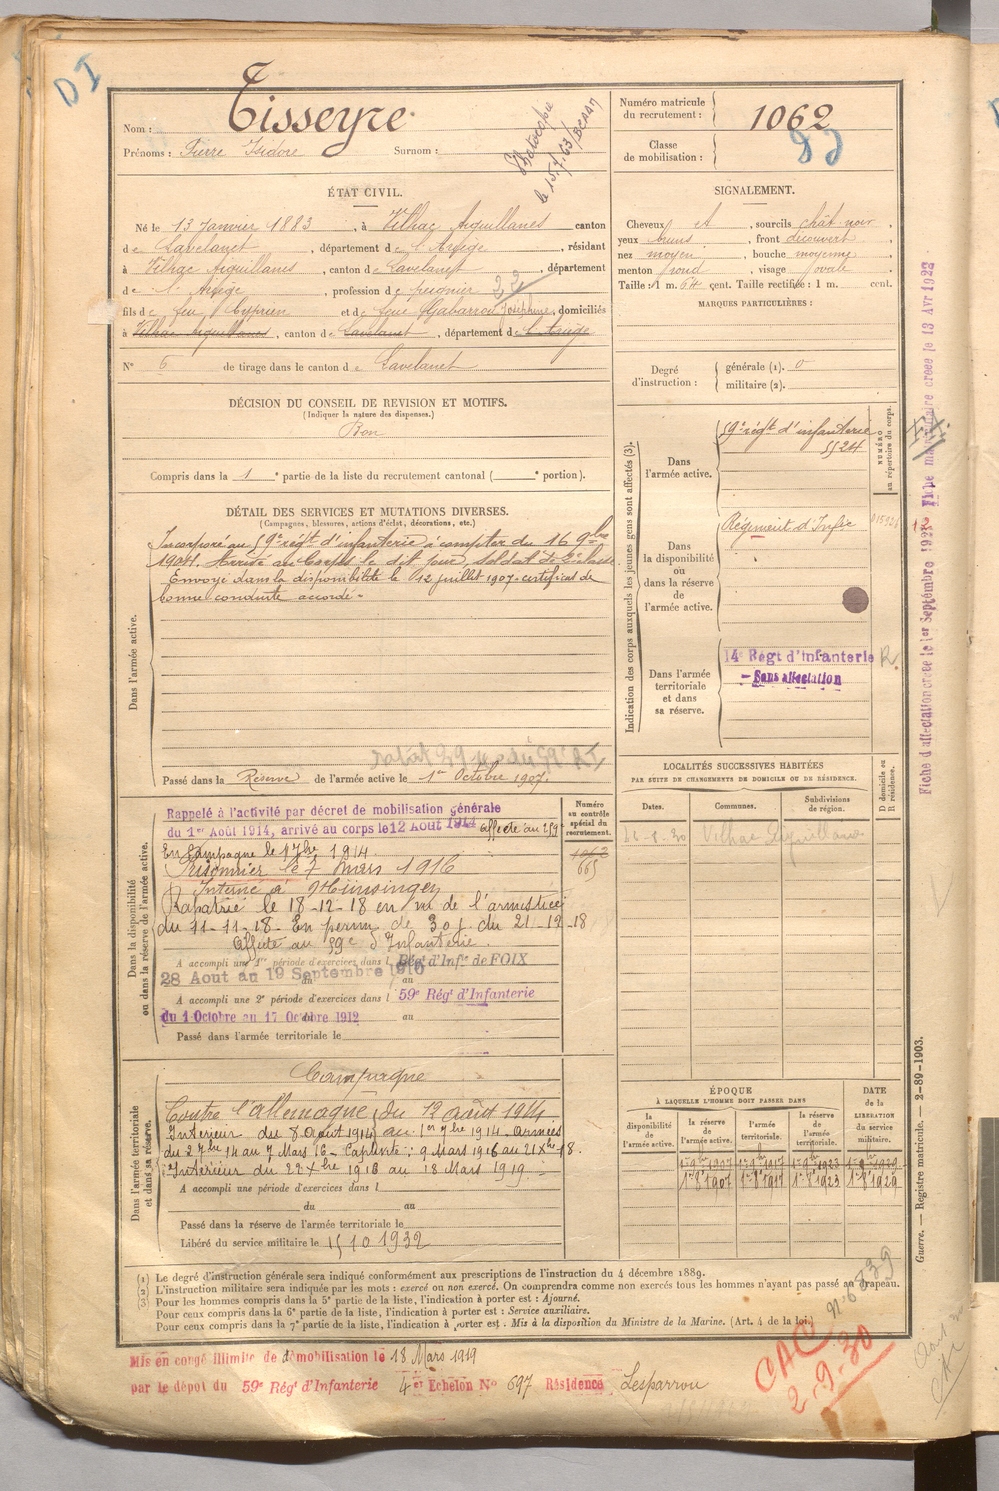 DI
Nom : Tisseyre
Prénoms : Pierre Isidore Surnom :
Photocopie
le 15.7.63
Numéro matricule du recrutement : 1062
Classe de mobilisation :
ÉTAT CIVIL.
Né le 13 Janvier 1883, à Vilhac Aiguillanes canton
de Lavelanet, département de l'Ariège, résidant
à Vilhac Aiguillanes, canton de Lavelanet, département
de l'Ariège, profession de peignier
fils de feu Cyprien et de feue Gabarrou Joséphine, domiciliés
à Vilhac Aiguillanes, canton de Lavelanet, département de l'Ariège
N° 6 de tirage dans le canton de Lavelanet
SIGNALEMENT.
Cheveux et, sourcils chât noir,
yeux bruns, front découvert,
nez moyen, bouche moyenne,
menton rond, visage ovale.
Taille : 1 m. 64 cent. Taille rectifiée : 1 m. cent.
MARQUES PARTICULIÈRES :
Degré d'instruction : générale (1). 0
militaire (2).
DÉCISION DU CONSEIL DE REVISION ET MOTIFS.
(Indiquer la nature des dispenses.)
Bon
Compris dans la 1e partie de la liste du recrutement cantonal ( e portion).
DÉTAIL DES SERVICES ET MUTATIONS DIVERSES.
(Campagnes, blessures, actions d'éclat, décorations, etc.)
Dans l'armée active.
Incorporé au 59e régt d'infanterie à compter du 16 9bre
1904. Arrivé au Corps le dit jour, soldat de 2e classe
Envoyé dans la disponibilité le 12 juillet 1907. certificat de
bonne conduite accordé.
Passé dans la Réserve de l'armée active le 1er Octobre 1907.
Indication des corps auxquels les jeunes gens sont affectés (3).
NUMÉRO au répertoire du corps.
Dans l'armée active.
59e régt d'infanterie
5524
Dans la disponibilité ou dans la réserve de l'armée active.
Régiment d'Infie
Dans l'armée territoriale et dans sa réserve.
14e Régt d'infanterie R.
- Sans affectation
Fiche d'affectation créée le 1er Septembre 1927 Fiche matriculaire créée le 13 Avr 1928
LOCALITÉS SUCCESSIVES HABITÉES
PAR SUITE DE CHANGEMENTS DE DOMICILE OU DE RÉSIDENCE.
Dates. Communes. Subdivisions de région. D domicile ou R résidence.
Vilhac Aiguillanes
Dans la disponibilité ou dans la réserve de l'armée active.
Numéro au contrôle spécial du recrutement.
1062
665
Rappelé à l'activité par décret de mobilisation générale
du 1er Août 1914, arrivé au corps le 12 Août 1914 affecté au 259e
En Campagne le 1 7bre 1914.
Prisonnier le 7 mars 1916
Interné à Münsingen
Rapatrié le 18-12-18 en vu de l'armistice
du 11-11-18. En perm de 30 j. du 21-12-18
Affecté au 59e d'Infanterie.
A accompli une 1re période d'exercices dans l Régt d'Infie de FOIX
28 Aout au 19 Septembre 1910
A accompli une 2e période d'exercices dans l 59e Régt d'Infanterie
du 1 Octobre au 17 Octobre 1912 au
Passé dans l'armée territoriale le
Dans l'armée territoriale et dans sa réserve.
Campagne
Contre l'allemagne du 12 août 1914
Intérieur du 8 Août 1914 au 1er 7bre 1914. Armées
du 2 7bre 14 au 7 Mars 16 - Captivité : 9 Mars 1916 au 21 Xbre 18.
Intérieur du 22 Xbre 1916 au 18 Mars 1919.
A accompli une période d'exercices dans l
du au
Passé dans la réserve de l'armée territoriale le
Libéré du service militaire le 15 10 1932
ÉPOQUE
À LAQUELLE L'HOMME DOIT PASSER DANS
la disponibilité de l'armée active. la réserve de l'armée active. l'armée territoriale. la réserve de l'armée territoriale.
DATE de la LIBÉRATION du service militaire.
1er 8bre 1907 1er 8bre 1917 1er 8bre 1923 1er 8bre 1929
Guerre. — Registre matricule. — 2-89-1903.
(1) Le degré d'instruction générale sera indiqué conformément aux prescriptions de l'instruction du 4 décembre 1889.
(2) L'instruction militaire sera indiquée par les mots : exercé ou non exercé. On comprendra comme non exercés tous les hommes n'ayant pas passé au drapeau.
(3) Pour les hommes compris dans la 5e partie de la liste, l'indication à porter est : Ajourné.
Pour ceux compris dans la 6e partie de la liste, l'indication à porter est : Service auxiliaire.
Pour ceux compris dans la 7e partie de la liste, l'indication à porter est : Mis à la disposition du Ministre de la Marine. (Art. 4 de la loi.)
Mis en congé illimité de démobilisation le 18 Mars 1919
par le dépot du 59e Régt d'Infanterie 4e Echelon No 697 Résidence Lesparrou
CAC
2-9-30